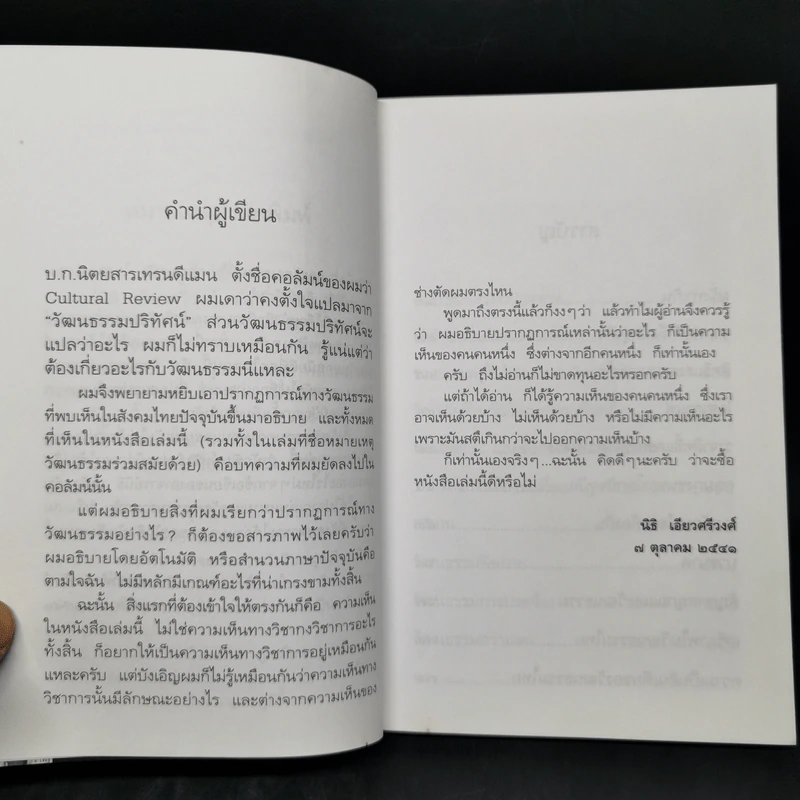 คำนำผู้เขียน
บ.ก.นิตยสารเทรนดีแมน ตั้งชื่อคอลัมน์ของผมว่า
Cultural Review ผมเดาว่าคงตั้งใจแปลมาจาก
“วัฒนธรรมปริทัศน์” ส่วนวัฒนธรรมปริทัศน์จะ
แปลว่าอะไร ผมก็ไม่ทราบเหมือนกัน รู้แน่แต่ว่า
ต้องเกี่ยวอะไรกับวัฒนธรรมนี่แหละ
ผมจึงพยายามหยิบเอาปรากฏการณ์ทางวัฒนธรรม
ที่พบเห็นในสังคมไทยปัจจุบันขึ้นมาอธิบาย และทั้งหมด
ที่เห็นในหนังสือเล่มนี้ (รวมทั้งในเล่มที่ชื่อหมายเหตุ
วัฒนธรรมร่วมสมัยด้วย) คือบทความที่ผมยัดลงไปใน
คอลัมน์นั้น
แต่ผมอธิบายสิ่งที่ผมเรียกว่าปรากฏการณ์ทาง
วัฒนธรรมอย่างไร? ก็ต้องขอสารภาพไว้เลยครับว่า
ผมอธิบายโดยอัตโนมัติ หรือสำนวนภาษาปัจจุบันคือ
ตามใจฉัน ไม่มีหลักมีเกณฑ์อะไรที่น่าเกรงขามทั้งสิ้น
ฉะนั้น สิ่งแรกที่ต้องเข้าใจให้ตรงกันก็คือ ความเห็น
ในหนังสือเล่มนี้ ไม่ใช่ความเห็นทางวิชากงวิชาการอะไร
ทั้งสิ้น ก็อยากให้เป็นความเห็นทางวิชาการอยู่เหมือนกัน
แหละครับ แต่บังเอิญผมก็ไม่รู้เหมือนกันว่าความเห็นทาง
วิชาการนั้นมีลักษณะอย่างไร และต่างจากความเห็นของ
ช่างตัดผมตรงไหน
พูดมาถึงตรงนี้แล้วก็งงๆว่า แล้วทำไมผู้อ่านจึงควรรู้
ว่า ผมอธิบายปรากฏการณ์เหล่านั้นว่าอะไร ก็เป็นความ
เห็นของคนคนหนึ่ง ซึ่งต่างจากอีกคนหนึ่ง ก็เท่านั้นเอง
ครับ ถึงไม่อ่านก็ไม่ขาดทุนอะไรหรอกครับ
แต่ถ้าได้อ่าน ก็ได้รู้ความเห็นของคนคนหนึ่ง ซึ่งเรา
อาจเห็นด้วยบ้าง ไม่เห็นด้วยบ้าง หรือไม่มีความเห็นอะไร
เพราะมันสตึเกินกว่าจะไปออกความเห็นบ้าง
ก็เท่านั้นเองจริงๆ...ฉะนั้น คิดดีๆนะครับ ว่าจะซื้อ
หนังสือเล่มนี้ดีหรือไม่
นิธิ เอียวศรีวงศ์
๗ ตุลาคม ๒๕๔๑